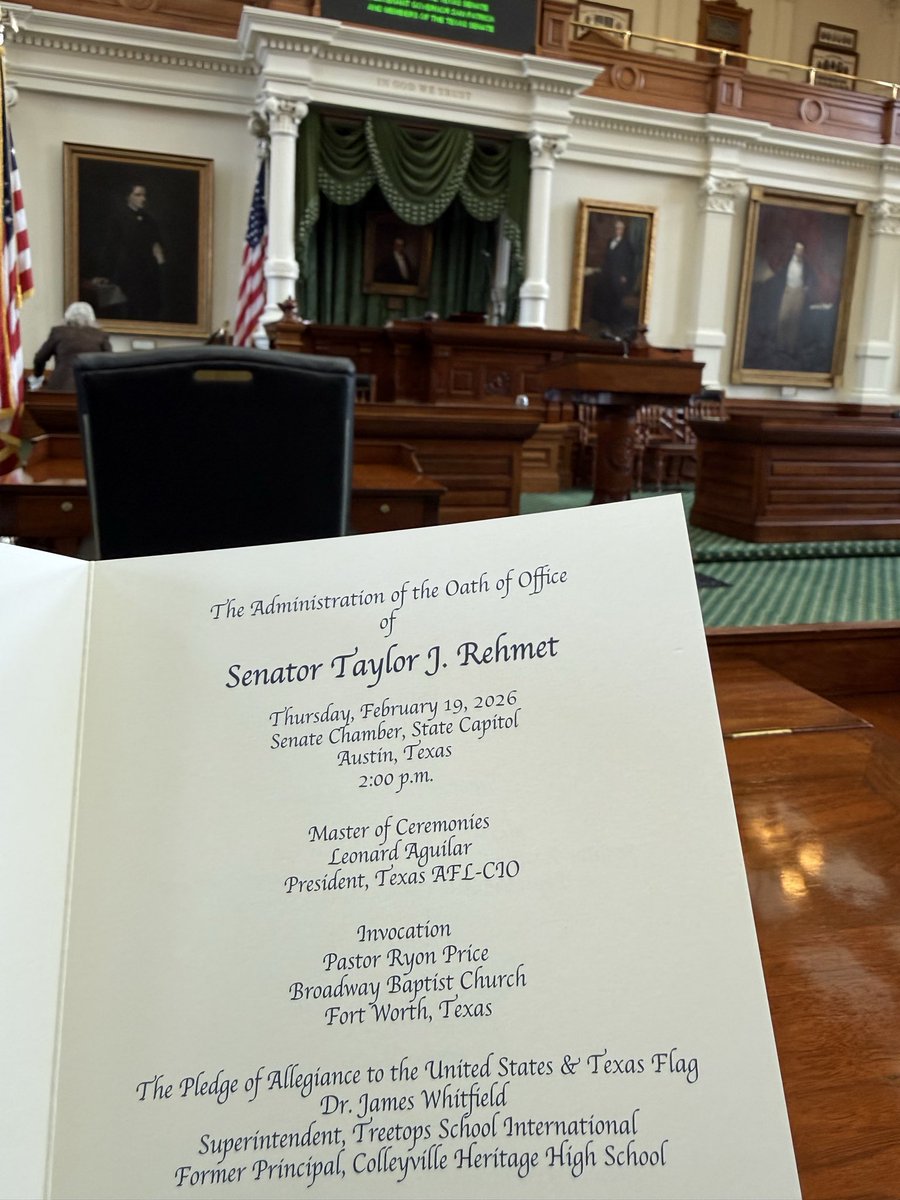 LIEUTENANT GOVERNOR DAN PATRICK
AND MEMBERS OF THE TEXAS SENATE
IN GOD WE TRUST
The Administration of the Oath of Office
of
Senator Taylor J. Rehmet
Thursday, February 19, 2026
Senate Chamber, State Capitol
Austin, Texas
2:00 p.m.
Master of Ceremonies
Leonard Aguilar
President, Texas AFL-CIO
Invocation
Pastor Ryon Price
Broadway Baptist Church
Fort Worth, Texas
The Pledge of Allegiance to the United States & Texas Flag
Dr. James Whitfield
Superintendent, Treetops School International
Former Principal, Colleyville Heritage High School